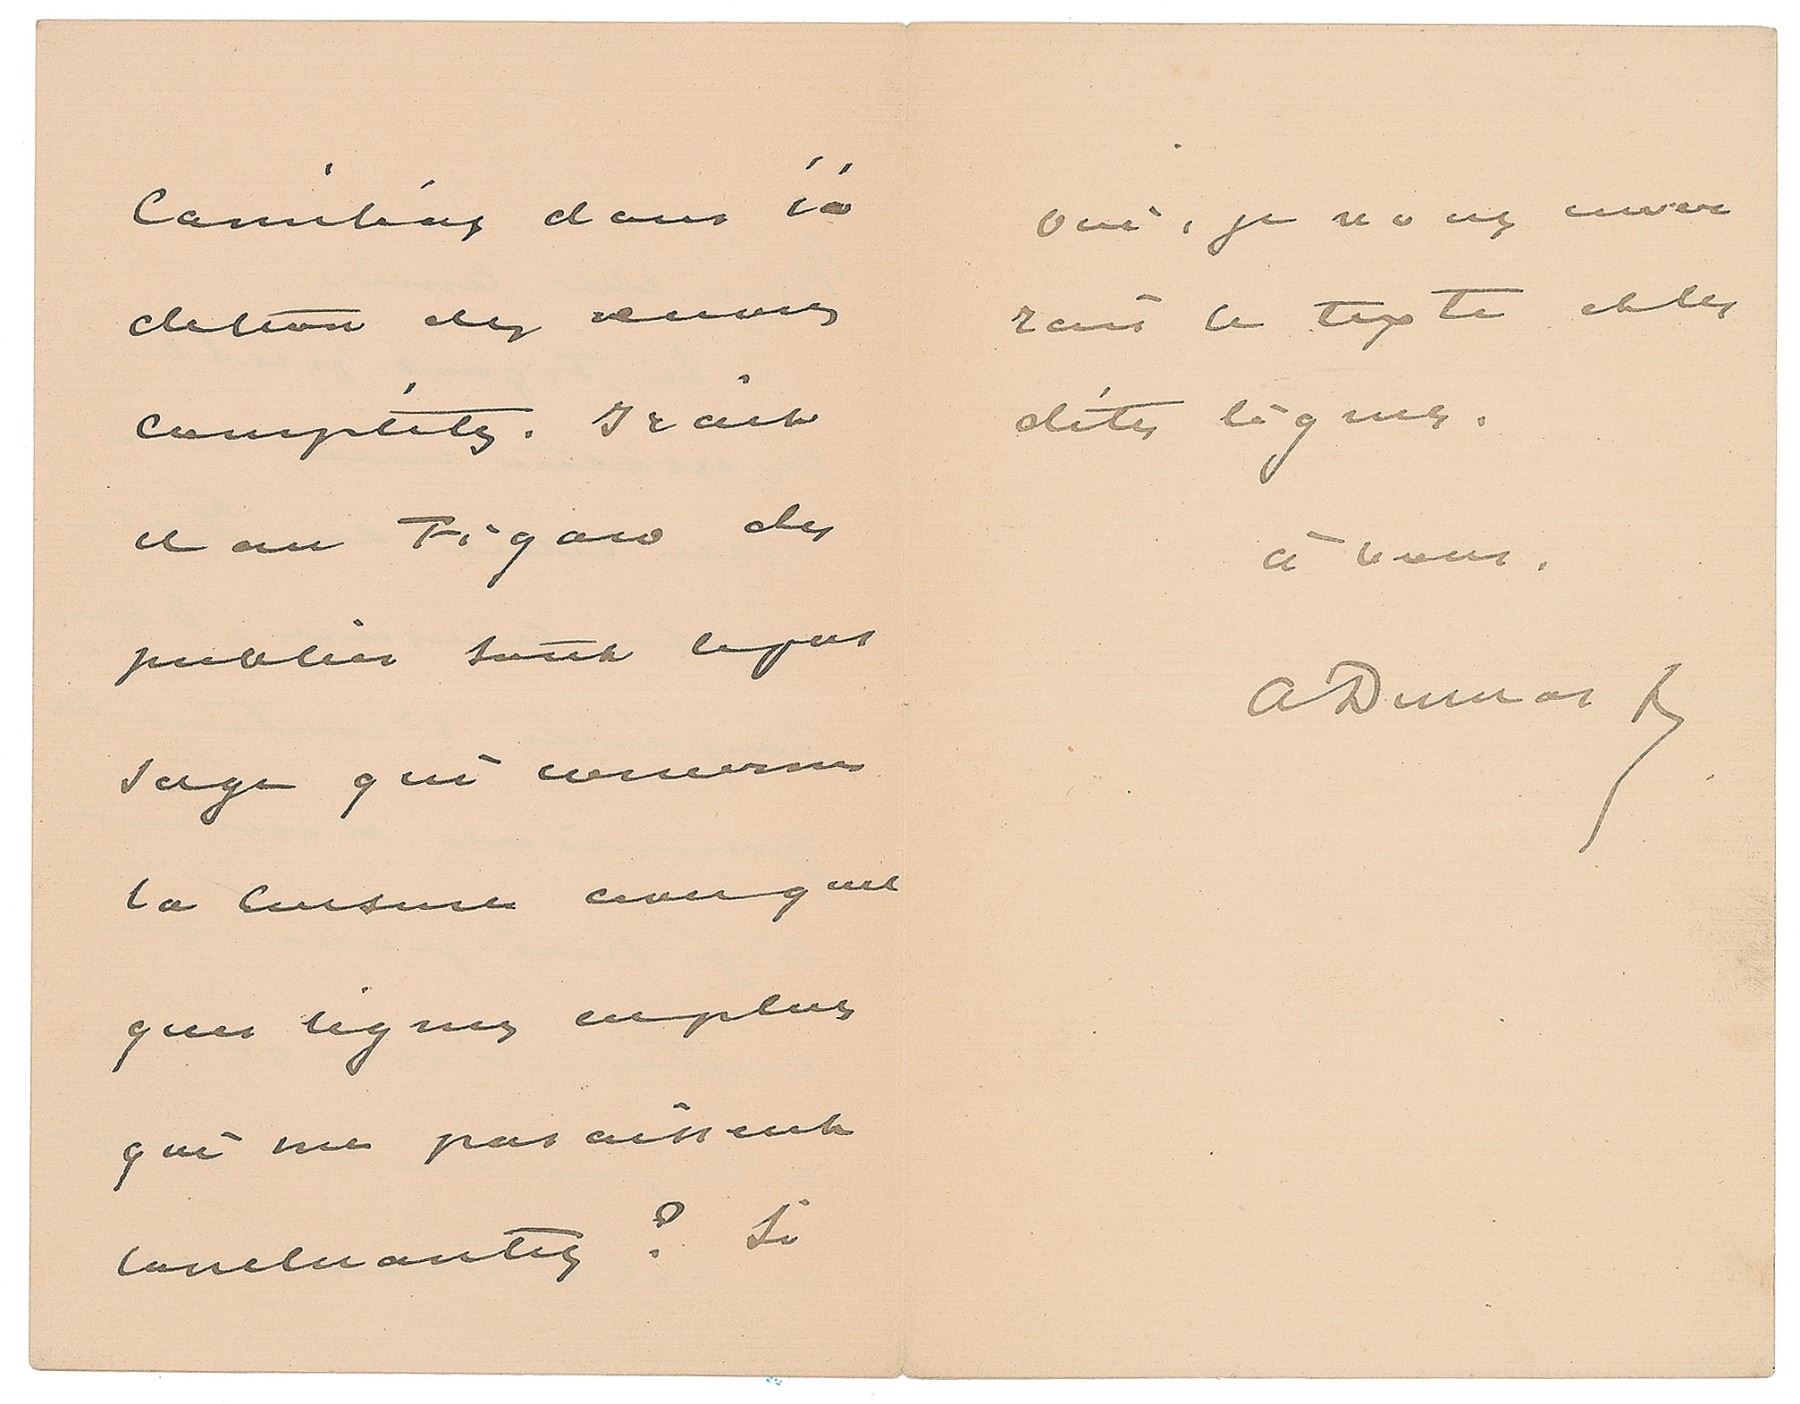 Camélias dans l'é
dition des œuvres
complètes. Irait
il au Figaro de
publier tout le pas
sage qui concerne
la Censure avec quel
ques lignes en plus
qui me paraissent
concluantes ? Si
oui, je vous enver
rai le texte
dites lignes.
à vous.
A Dumas f